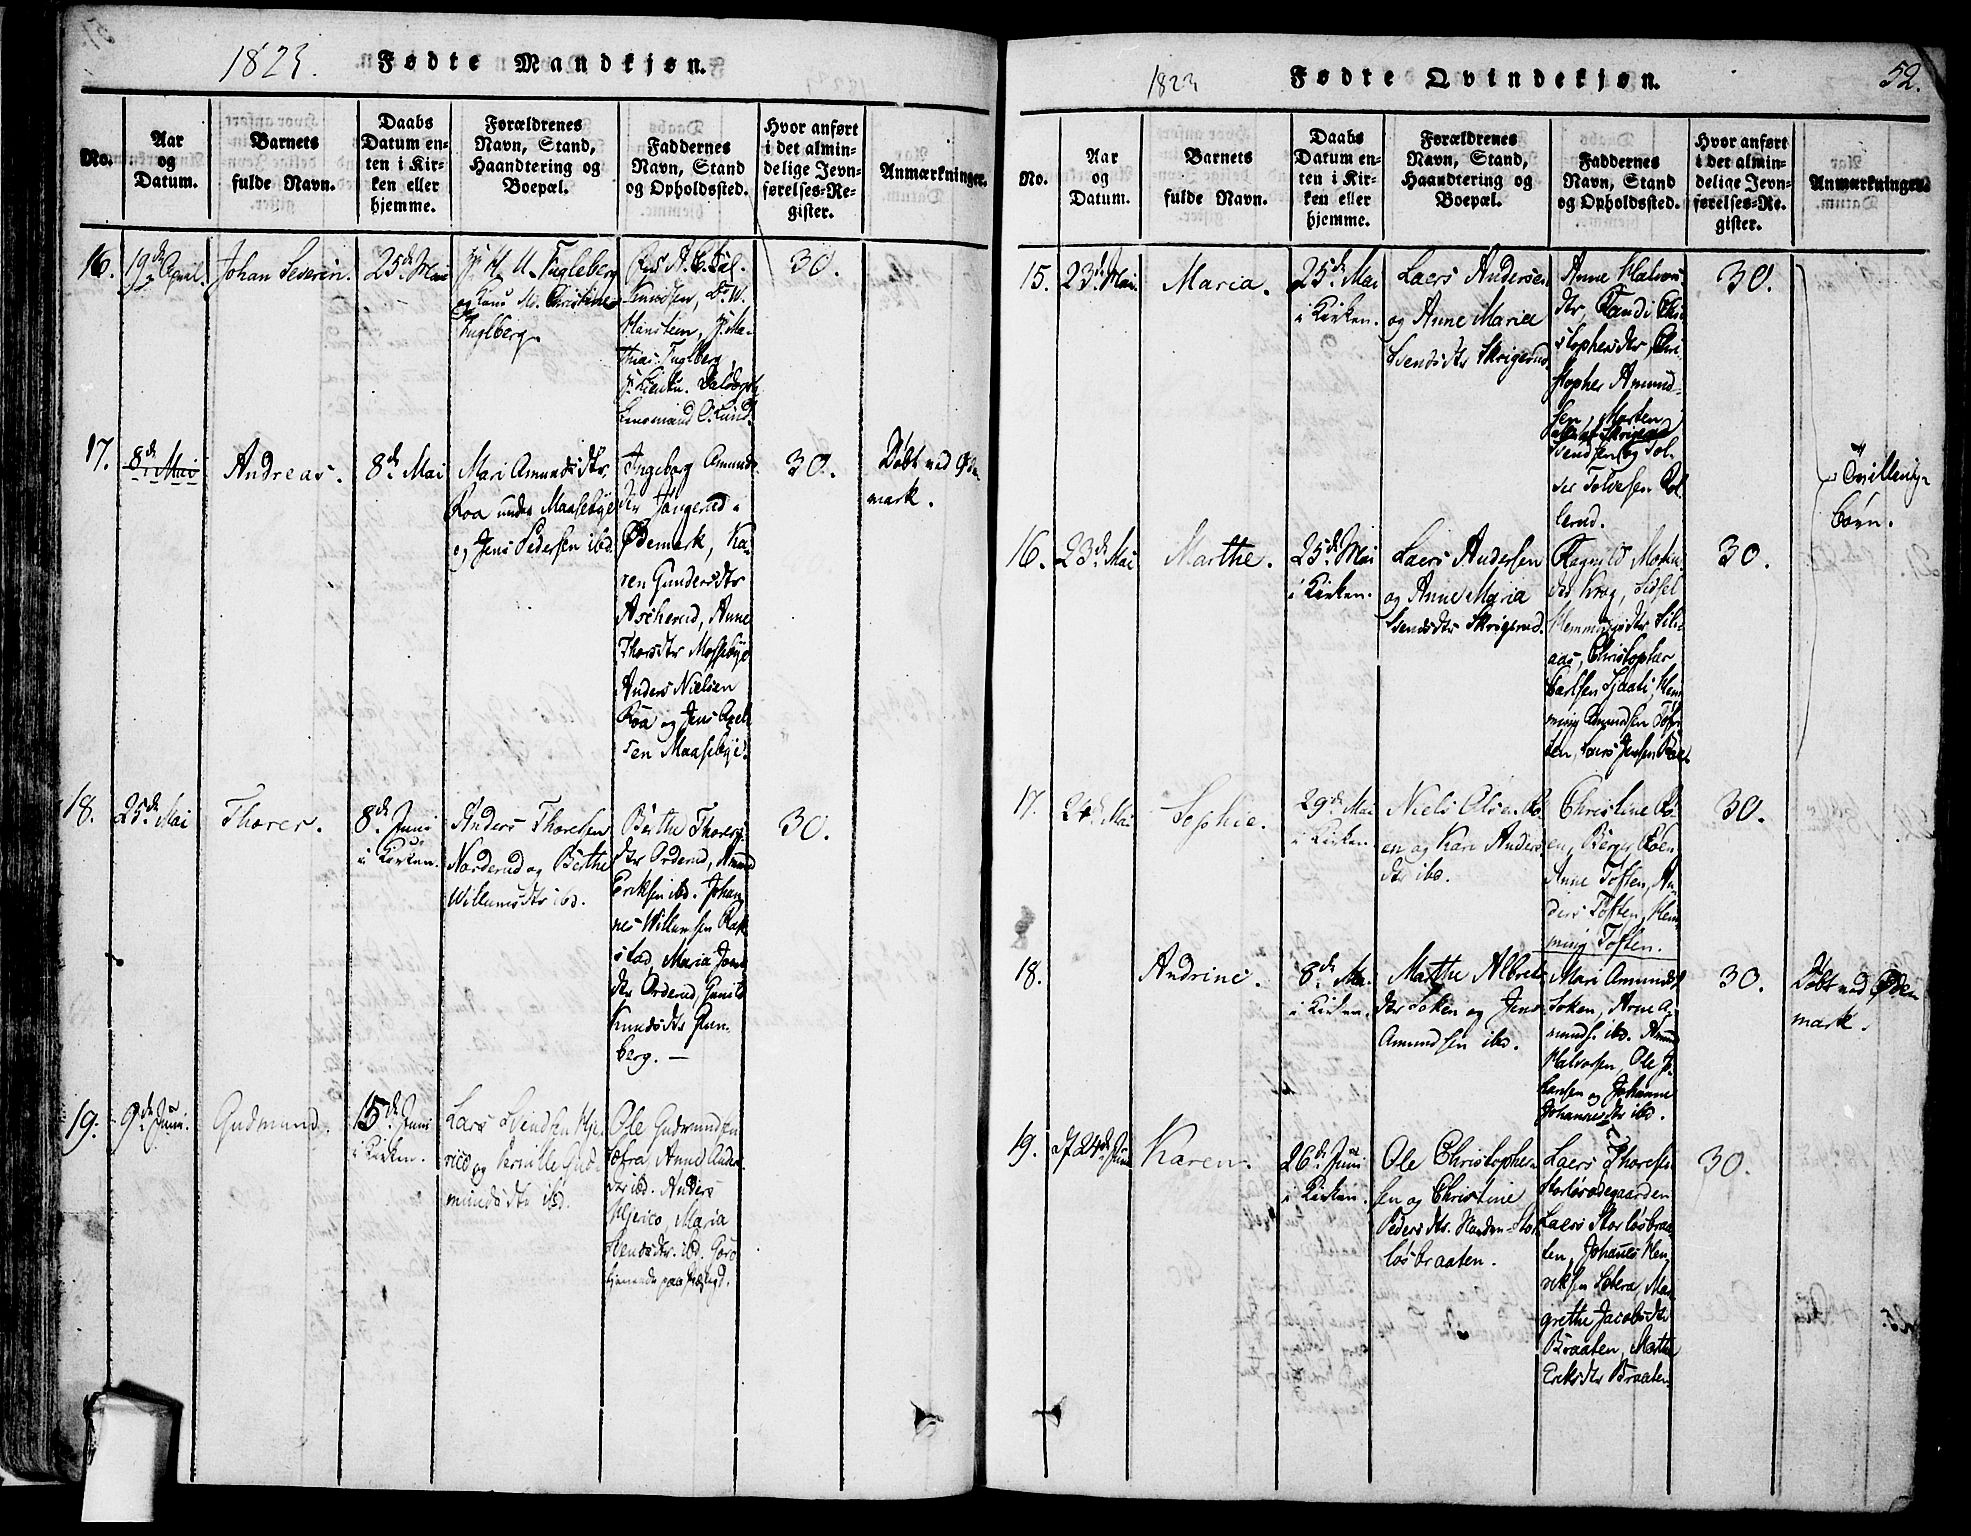 1823.
Fødte Mandkjøn.
No.
Aar
og
Datum.
Barnets
fulde Navn.
Daabs
Datum en-
ten i Kir-
ken eller
hjemme.
Forældrenes
Navn, Stand,
Haandtering og
Boepæl.
Faddernes
Navn, Stand
og Opholdssted.
Hvor anført
i det almin-
delige Jevn-
førelses-Re-
gister.
Anmærkninger.
16.
19de April.
Johan Severin.
25de Mai
Fuglberg.
Hansteen,
Fuglberg,
30.
17.
8de Mai
Andreas.
8de Mai
Mari Amundsdtr
Roa under Maasebye
og Jens Pedersen ibd.
Ingeborg Amunds-
dtr
Ødemark, Ka-
ren Gundersdtr
Ascherud, Anne
Thorsdtr Mossebye
Anders Nielsen
Roa og Jens Axel-
sen Maasebye.
30.
Døbt ved Øde-
mark.
18.
25de Mai
Thorer.
8de Juni
i Kirken.
Anders Thoresen
Norderud og Berthe
Willumsdtr ibd.
Berthe Thorers-
dtr Orderud, Amund
Eriksen ibd. Johan-
nes Willumsen Rak-
stad, Maria Jons-
dtr Orderud, Gunild
Knudsdtr
berg. —
30.
19.
9de Juni.
Gudmund.
15de Juni
i Kirken.
Lars Svendsen Hje-
rico og Pernille Gud-
mundsdtr ibd.
Ole Gudmundsen
Anne Anders-
dtr ibd. Anders
Hjerico, Maria
Svendsdtr. ibd.
tjenende paa
1823
Fødte Qvindekjøn.
52.
No.
Aar
og
Datum.
Barnets
fulde Navn.
Daabs
Datum en-
ten i Kir-
ken eller
hjemme.
Forældrenes
Navn, Stand,
Haandtering og
Boepæl.
Faddernes
Navn, Stand
og Opholdssted.
Hvor anført
i det almin-
delige Jevn-
førelses-Re-
gister.
Anmærkninger.
15.
23de Mai
Maria.
25de Mai
i Kirken.
Laers Andersen
og Anne Maria
Svendsdtr Skrigerud
Anne Halvors-
dtr, Randi Chri-
stophersdtr, Chri-
stopher Amund-
sen, Morten
Svendsen og Tol-
30.
Tvilling-
børn.
16.
23de Mai
Marthe.
25de Mai
i Kirken.
Laers Andersen
og Anne Maria
Svendsdtr Skrigerud.
Ragnild Mortens-
dtr Krog, Sidsel
Hemmingsdtr
aas, Christopher
Carlsen
ming Amundsen Tøf-
ten, Laers Jensen
30.
17.
24de Mai
Sophie.
29de Mai
i Kirken.
Niels Olsen Ro-
en og Kari Anders-
dtr ibd.
Christine Ro-
en, Børger Roen
Anne Toften, An-
ders Toften, Hem-
ming Toften.
30.
18.
Andrine.
8de Mai
i Kirken.
Mathe Albrets-
dtr Token og Jens
Amundsen ibd.
Mari Amundsd.
Token, Arne A-
munds. ibd. Amund
Halvorsen, Ole Jo-
hansen og Johanne
Johannesdtr ibd.
30.
Døbt ved Øde-
mark.
19.
Karen.
26de Juni
i Kirken.
Ole Christopher-
sen og Christine
Pedersdtr.
løsbraaten.
Laers Thoresen
Laers Storløsbraa-
ten, Johannes Hen-
riksen Mar-
grethe Jacobsdtr
Braaten, Marthe
Eriksdtr Braaten
30.